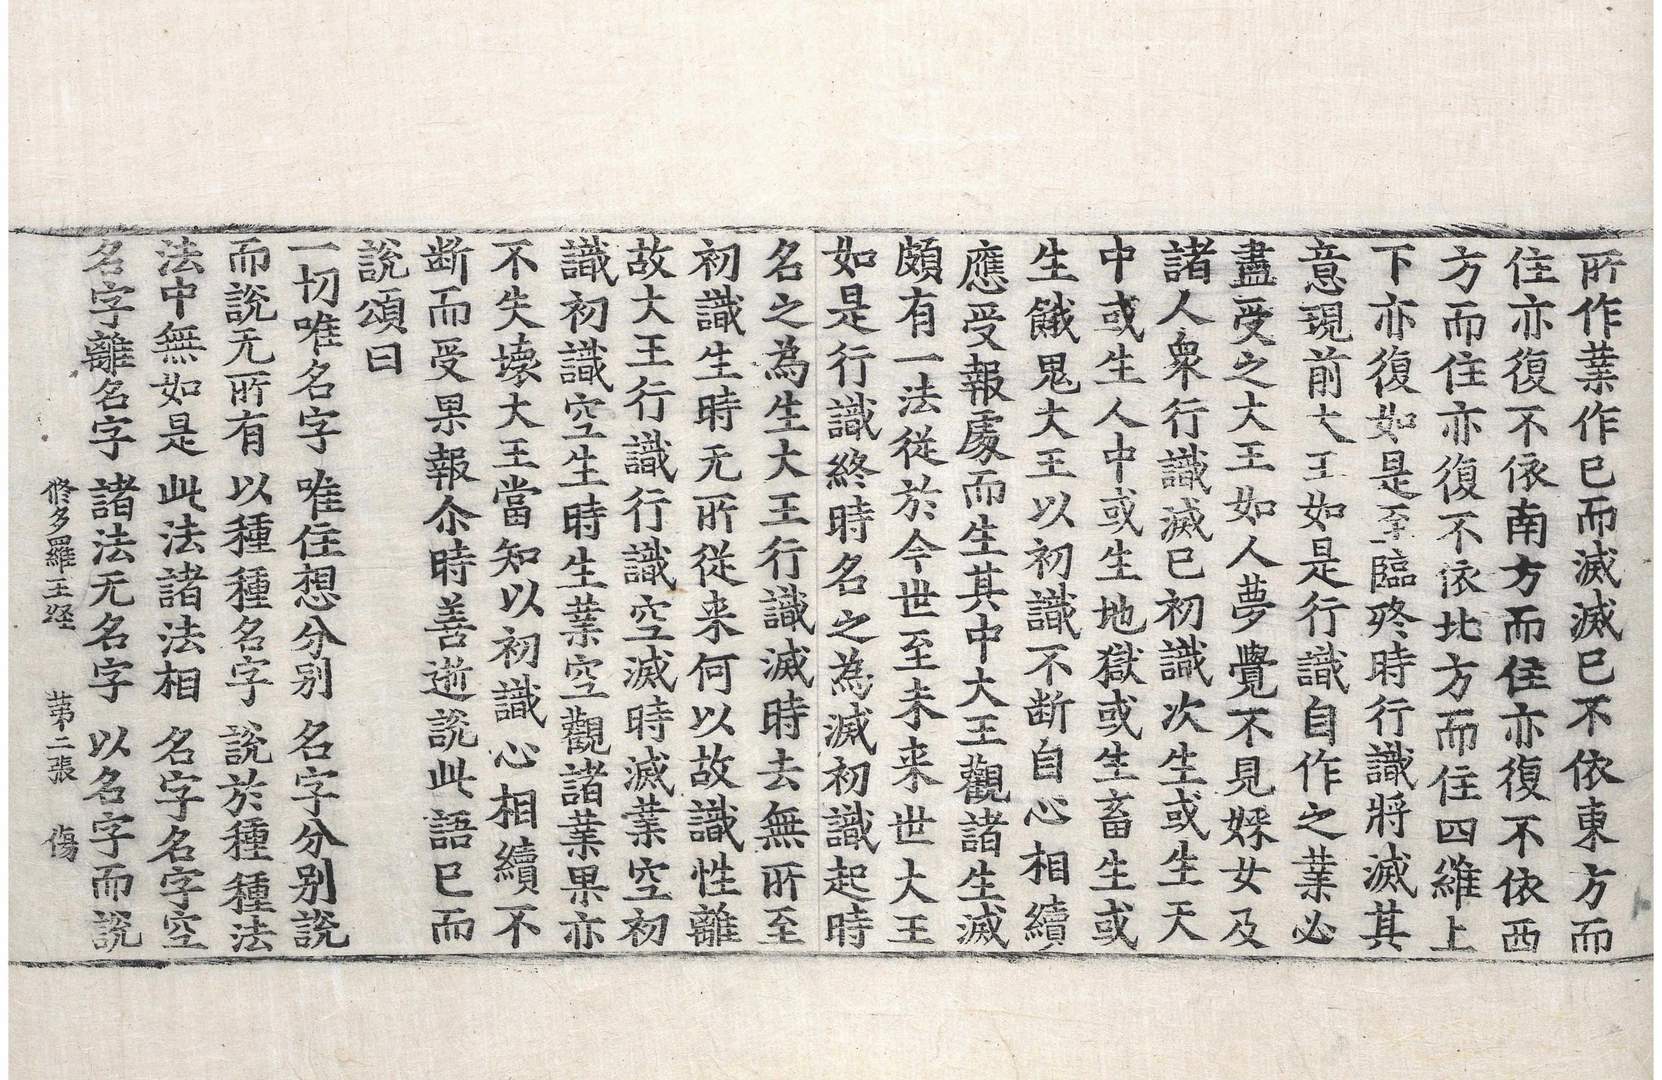 所作業作已而滅滅已不依東方而
住亦復不依南方而住亦復不依西
方而住亦復不依北方而住四維上
下亦復如是至臨終時行識將滅其
意現前大王如是行識自作之業必
盡受之大王如人夢覺不見婇女及
諸人衆行識滅已初識次生或生天
中或生人中或生地獄或生畜生或
生餓鬼大王以初識不断自心相續
應受報處而生其中大王觀諸生滅
頗有一法從於今世至未来世大王
如是行識終時名之為滅初識起時
名之為生大王行識滅時去無所至
初識生時无所従来何以故識性離
故大王行識行識空滅時滅業空初
識初識空生時生業空觀諸業果亦
不失壊大王當知以初識心相續不
断而受果報尒時善逝說此語已而
說頌曰
一切唯名字　唯住想分别　名字分别說
而說无所有　以種種名字　說於種種法
法中無如是　此法諸法相　名字名字空
名字離名字　諸法无名字　以名字而說
修多羅王経　苐二張　傷